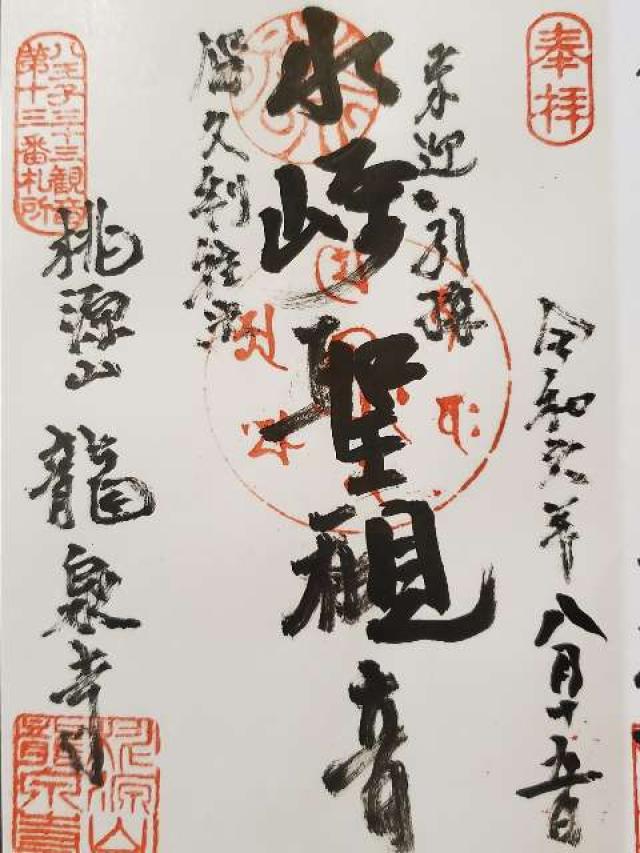 奉拝
令和六年八月十五日
来迎・引接
水崎聖観音
久利
八王子三十三観音
第十三番札所
桃源山 龍泉寺
桃源山
龍泉寺